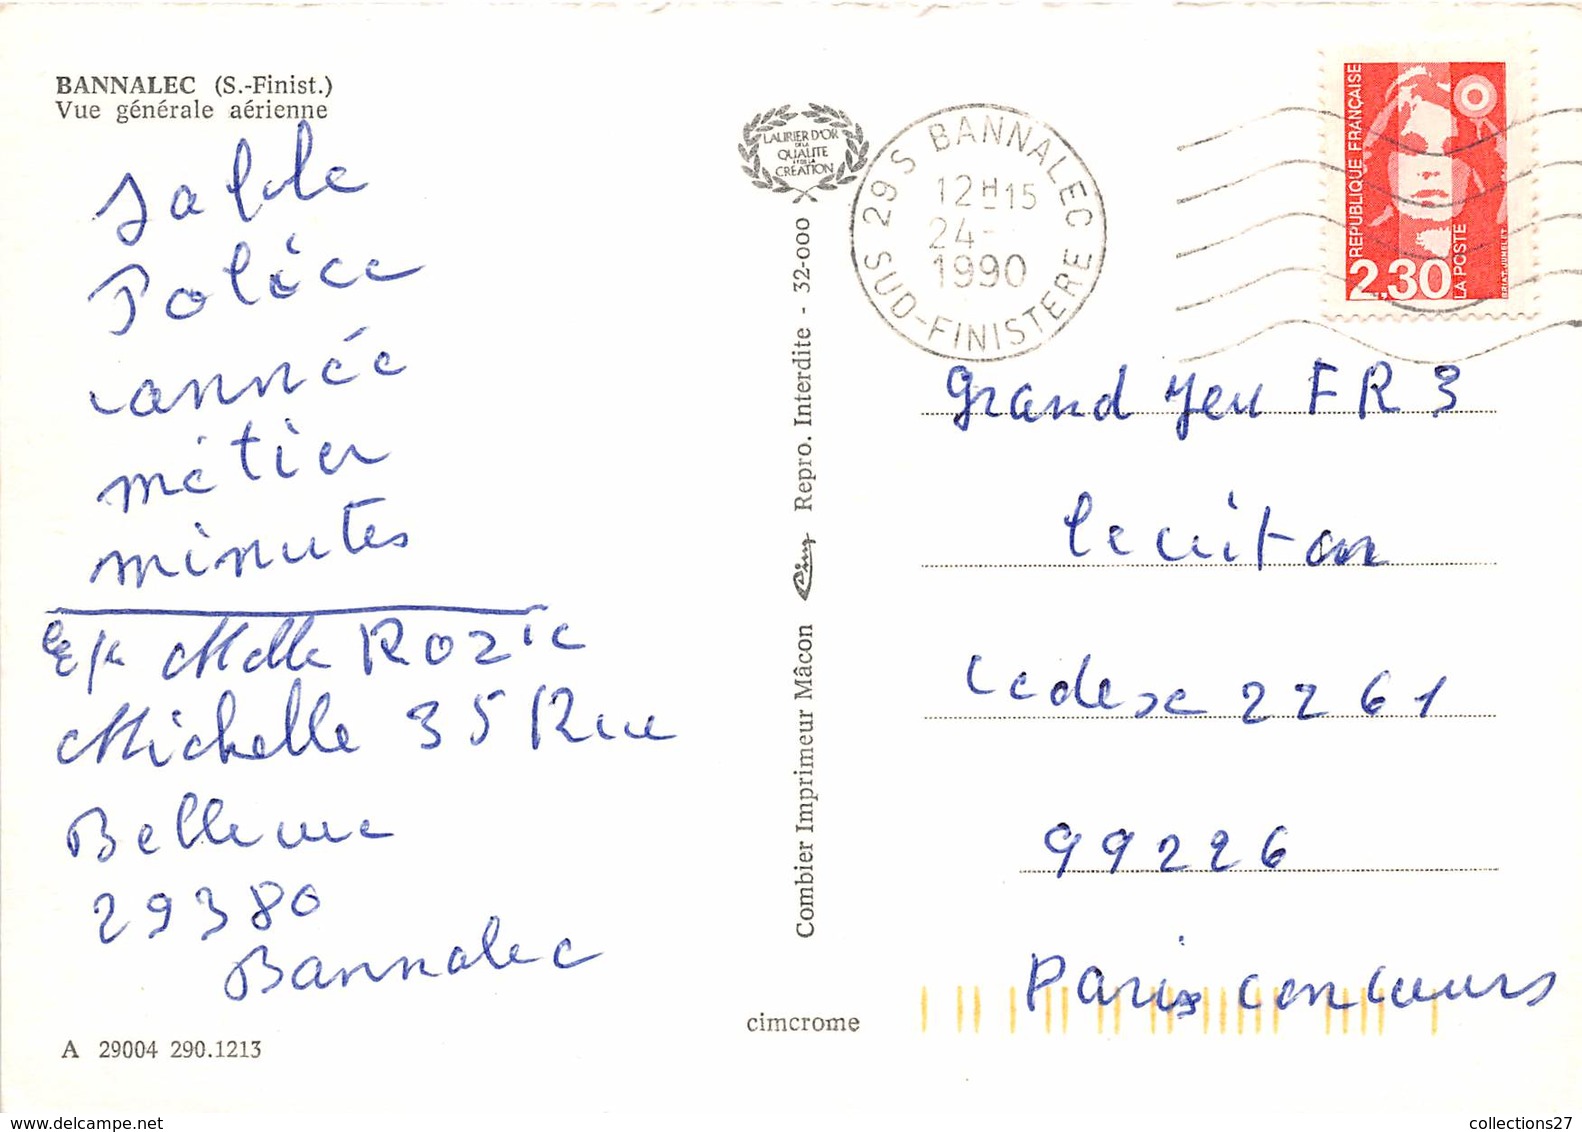 BANNALEC (S.-Finist.)
Vue générale aérienne
Sable
Police
année
métier
minutes
Melle Rozic
Michelle 35 Rue
Bellevue
29380
Bannalec
A 29004 290.1213
LAURIER D'OR
DE LA
QUALITE
ET DE LA
CREATION
Combier Imprimeur Mâcon Cim Repro. Interdite - 32-000
cimcrome
29 S BANNALEC
12H15
24-
1990
SUD-FINISTERE
REPUBLIQUE FRANÇAISE
2,30
LA POSTE
BRIAT-JUMELET
grand Jeu FR3
cedex 2261
99226
Paris concours
collections27